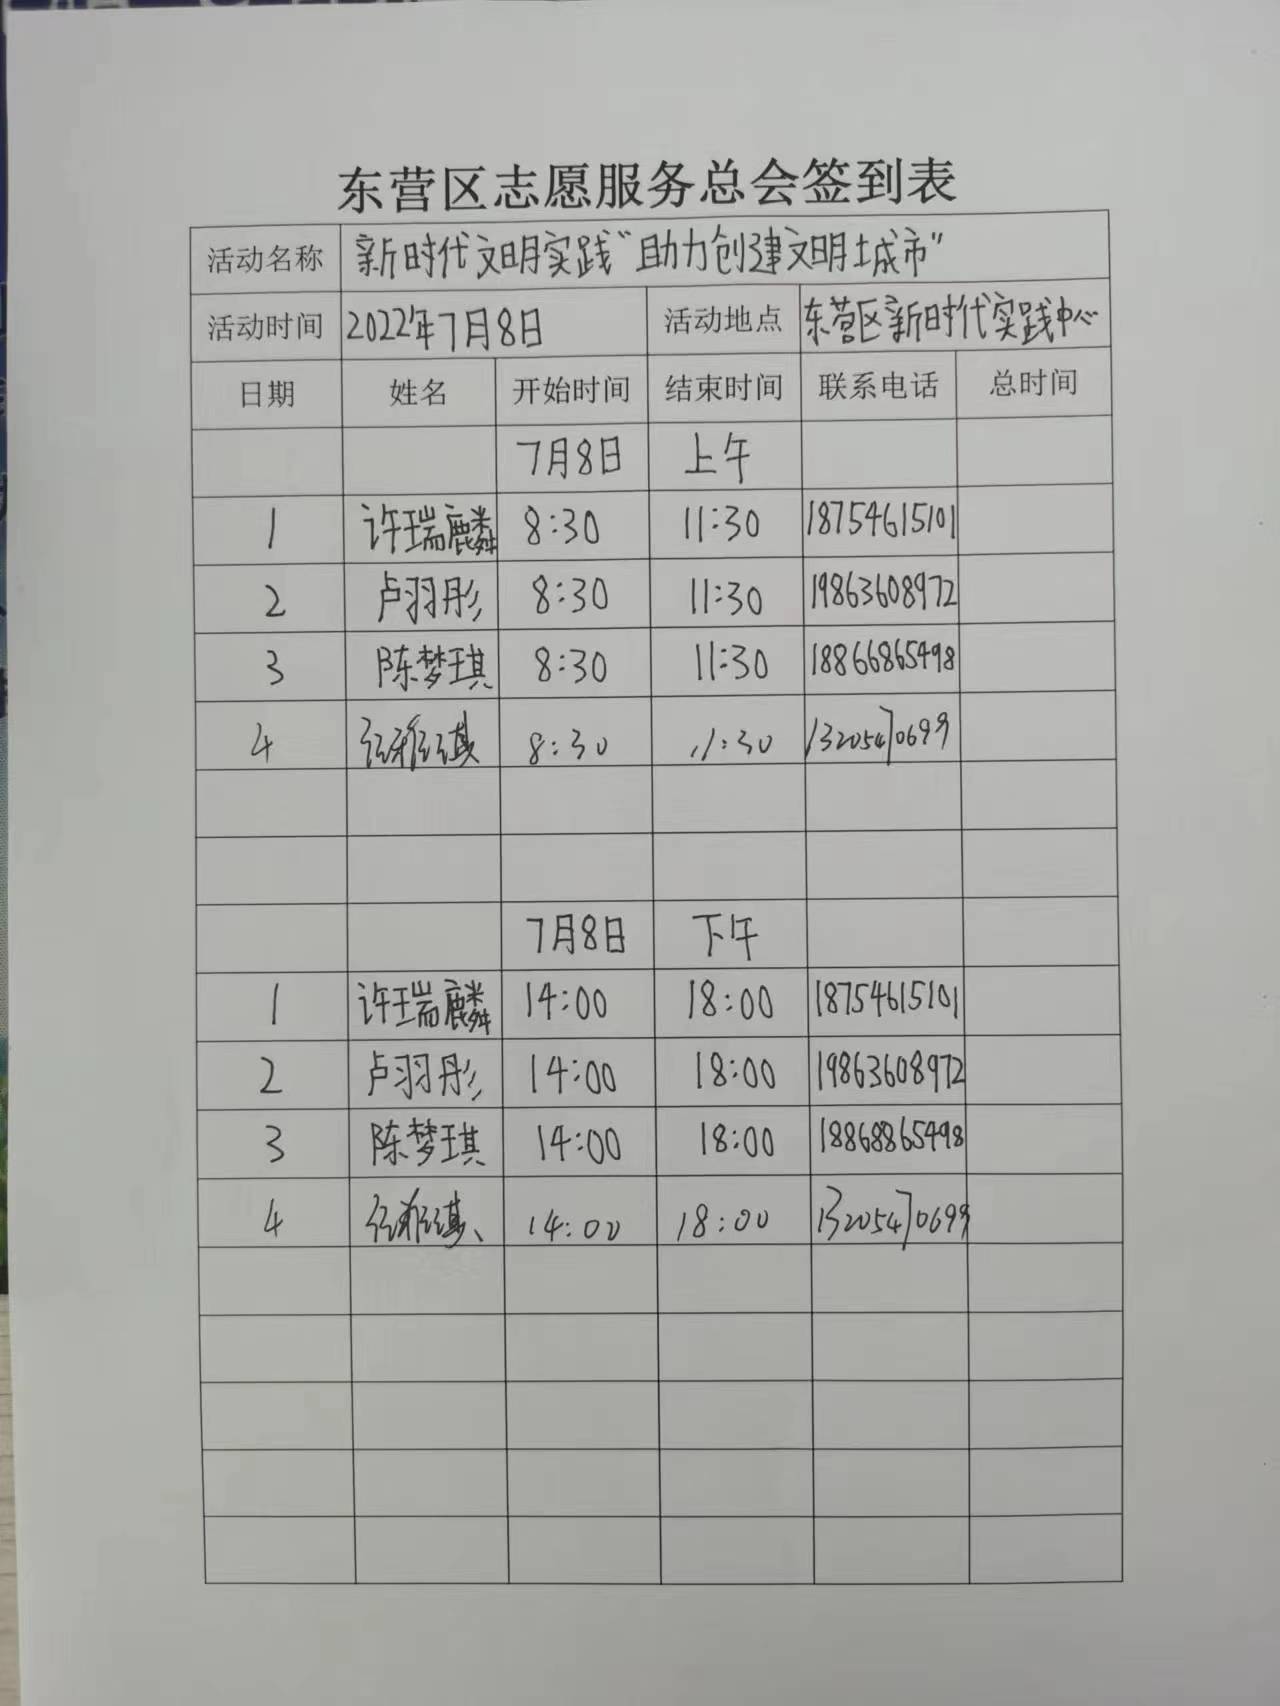 东营区志愿服务总会签到表
活动名称 新时代文明实践“助力创建文明城市”
活动时间 2022年7月8日 活动地点 东营区新时代实践中心
日期 姓名 开始时间 结束时间 联系电话 总时间
7月8日 上午
1 许瑞麟 8:30 11:30 18754615101
2 卢羽彤 8:30 11:30 19863608972
3 陈梦琪 8:30 11:30 18866865498
4 8:30 11:30 13205470699
7月8日 下午
1 许瑞麟 14:00 18:00 18754615101
2 卢羽彤 14:00 18:00 19863608972
3 陈梦琪 14:00 18:00 18868865498
4 14:00 18:00 13205470699